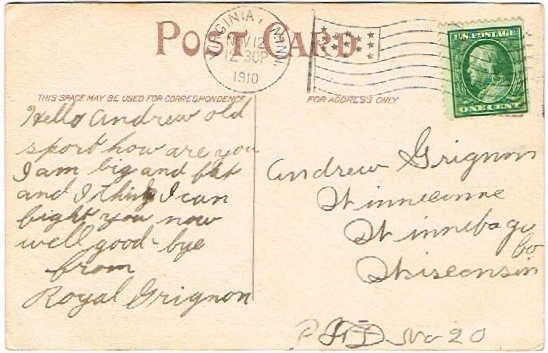 POST CARD
VIRGINIA, MINN.
NOV 12
12-30P
1910
U.S. POSTAGE
ONE CENT
THIS SPACE MAY BE USED FOR CORRESPONDENCE
FOR ADDRESS ONLY
Hello Andrew old
sport how are you
I am big and fat
and I think I can
bight you now
well good-bye
from
Royal Grignon
Andrew Grignon
Winneconne
Winnebago
Co
Wisconsin
No 20